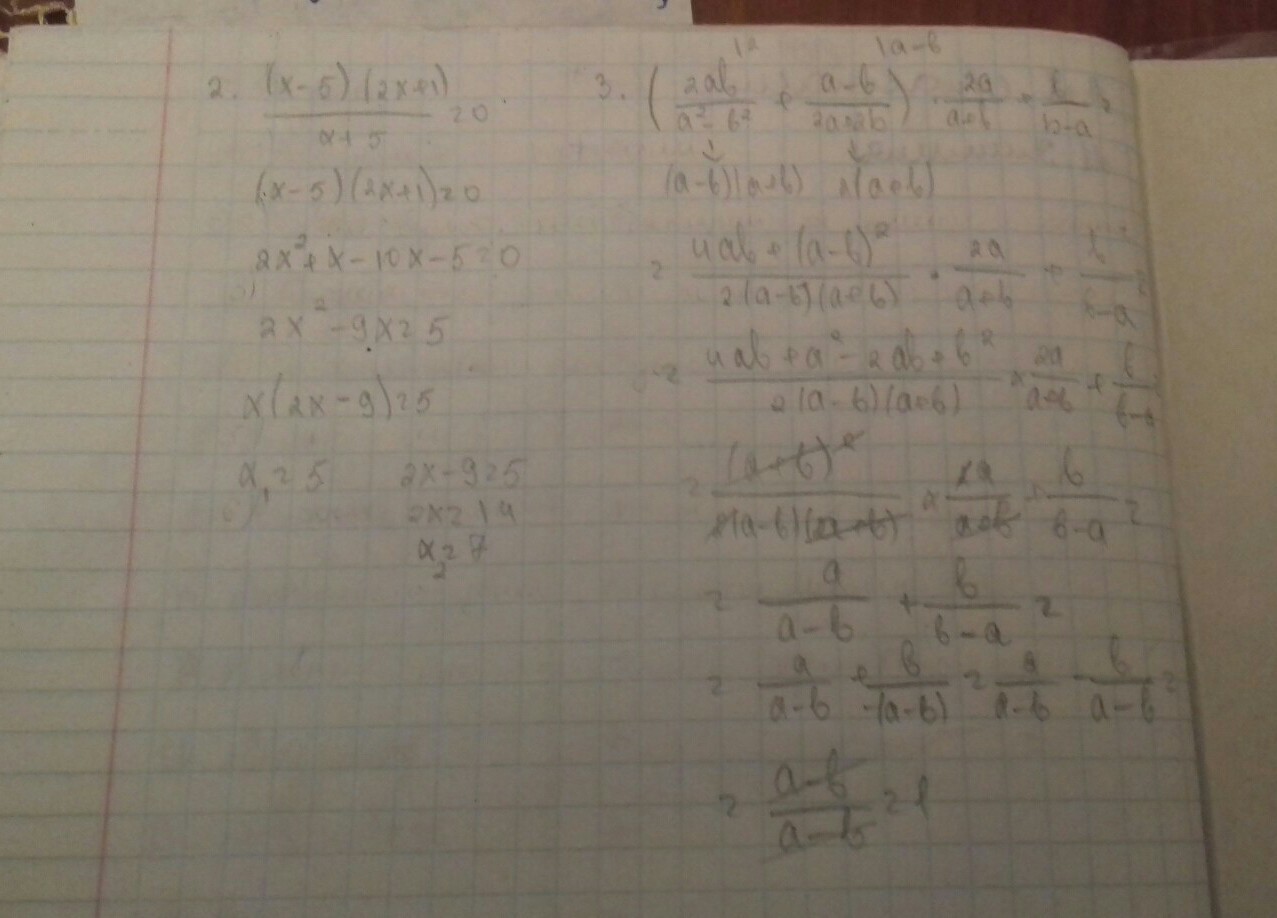 2. (x-5)(2x+1)/(x+5) = 0
(x-5)(2x+1) = 0
2x² + x - 10x - 5 = 0
2x² - 9x = 5
x(2x-9) = 5
x₁ = 5 2x-9 = 5
2x = 14
x₂ = 7
|2 |a-b
3. (2ab/(a²-b²) + (a-b)/(2a+2b)) · 2a/(a+b) + b/(b-a) =
(a-b)(a+b) 2(a+b)
= (4ab+(a-b)²)/(2(a-b)(a+b)) · 2a/(a+b) + b/(b-a) =
= (4ab+a²-2ab+b²)/(2(a-b)(a+b)) × 2a/(a+b) + b/(b-a)
= (a+b)²/(2(a-b)(a+b)) × 2a/(a+b) + b/(b-a) =
= a/(a-b) + b/(b-a) =
= a/(a-b) + b/(-(a-b)) = a/(a-b) - b/(a-b) =
= (a-b)/(a-b) = 1